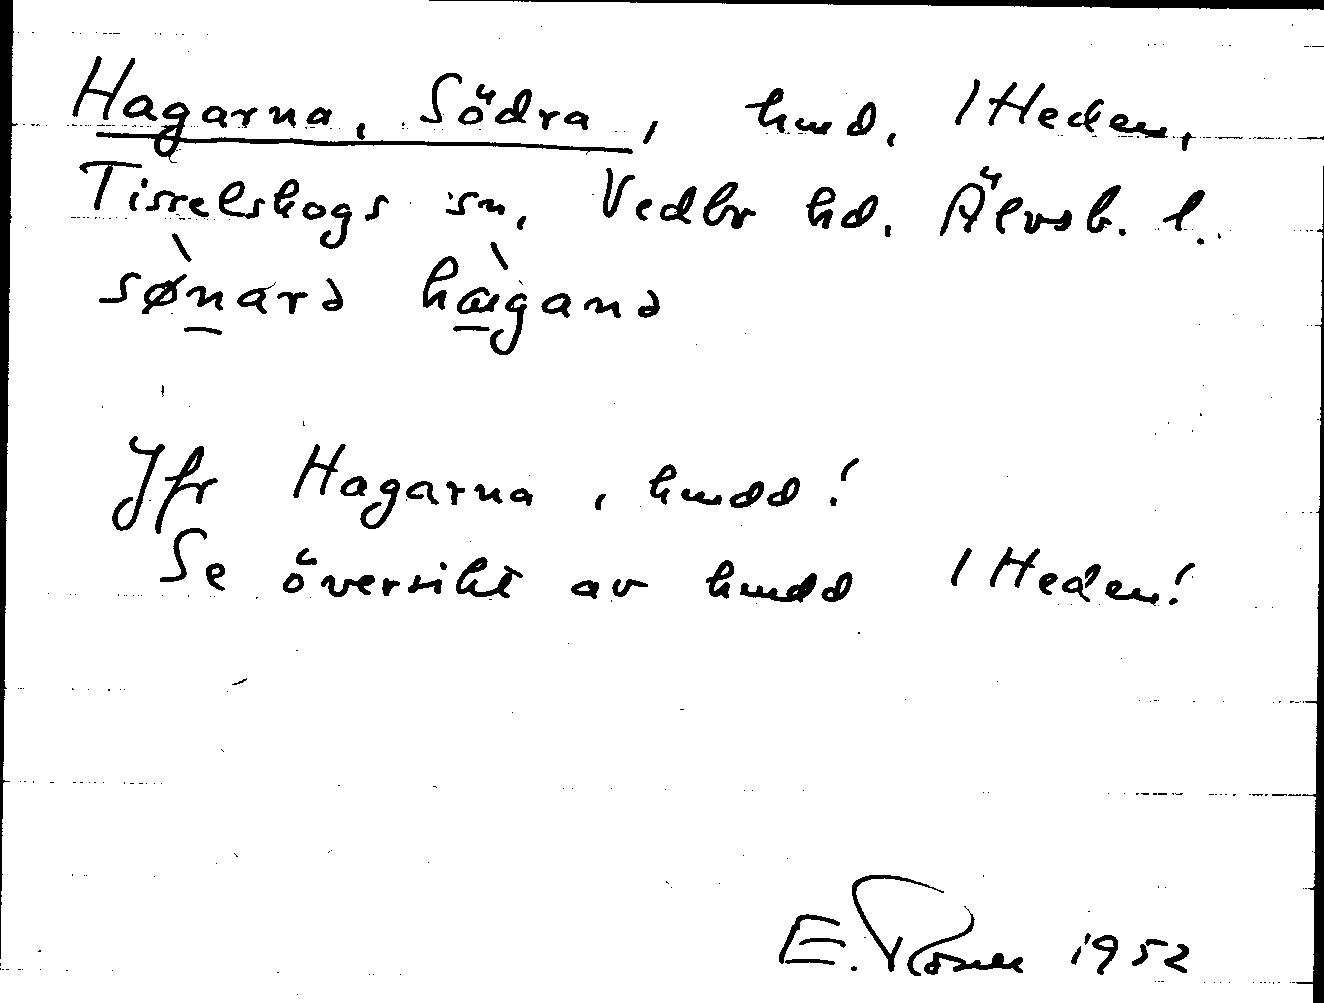 Hagarna, Södra, hmd. 1 Heden,
Tisselskogs sn, Vedbo hd. Älvsb. l.
sø̀narə hàganə
Jfr Hagarna, hmdd!
Se översikt av hmdd 1 Heden!
E. Rosell 1952